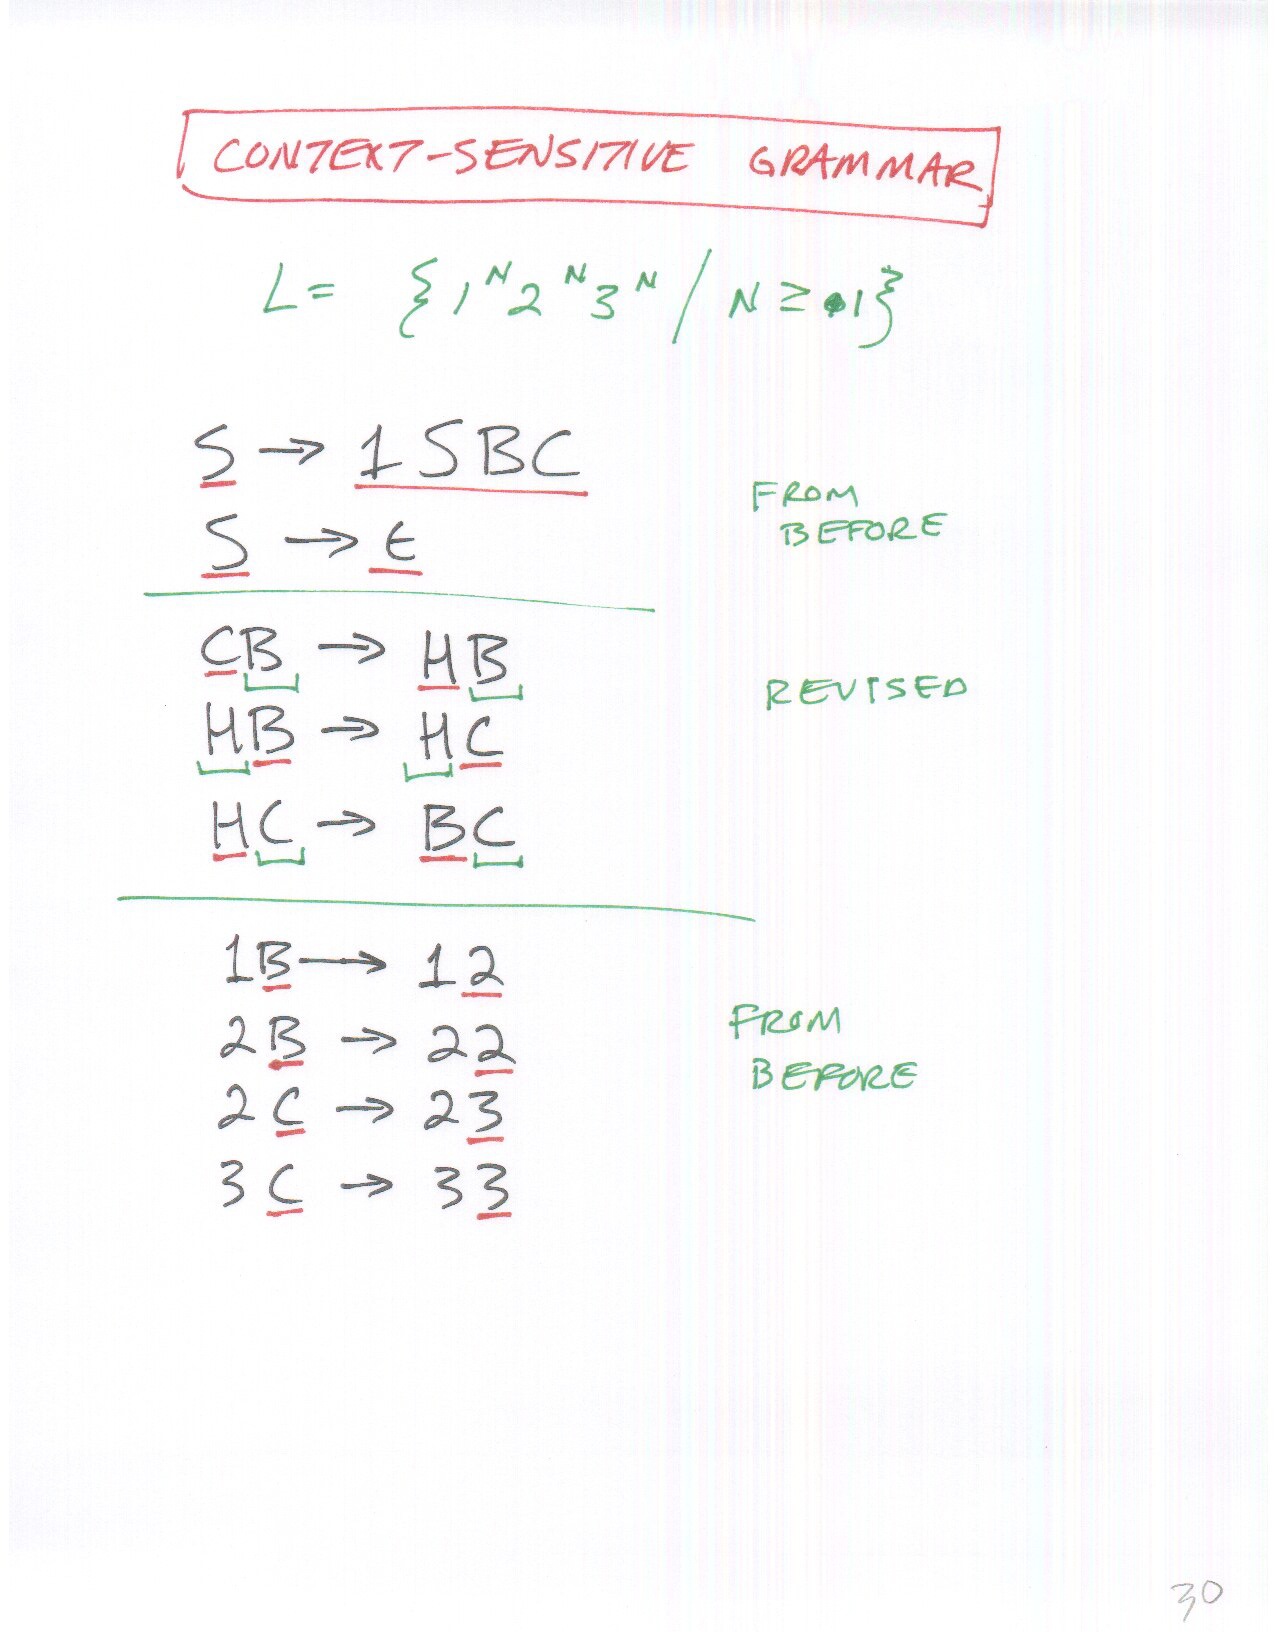 CONTEXT-SENSITIVE GRAMMAR
L = {1^N 2^N 3^N / N ≥ 1}
S → 1SBC
S → ϵ
FROM
BEFORE
CB → HB
HB → HC
HC → BC
REVISED
1B → 12
2B → 22
2C → 23
3C → 33
FROM
BEFORE
30